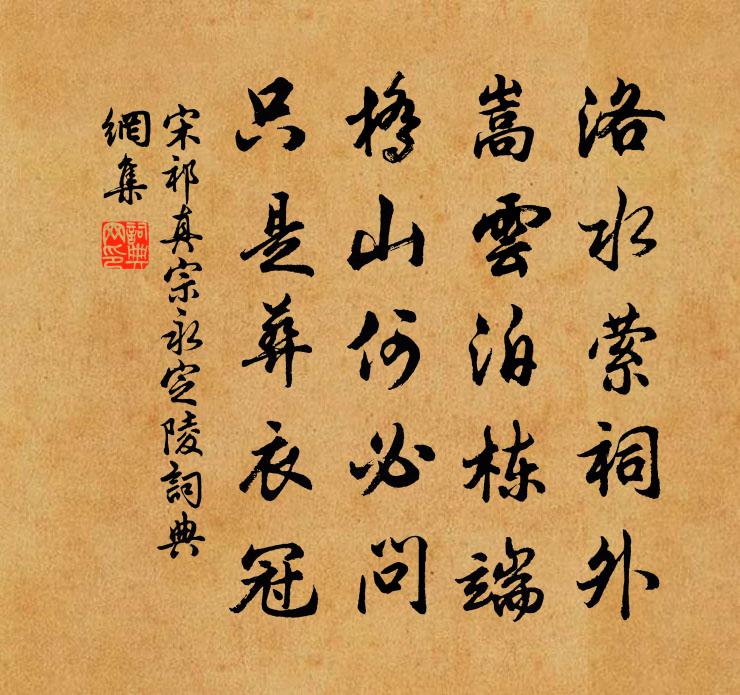 洛水萦祠外
嵩雲泊栋端
橋山何必問
只是葬衣冠
宋祁真宗永定陵詞典
網集
詞典網印